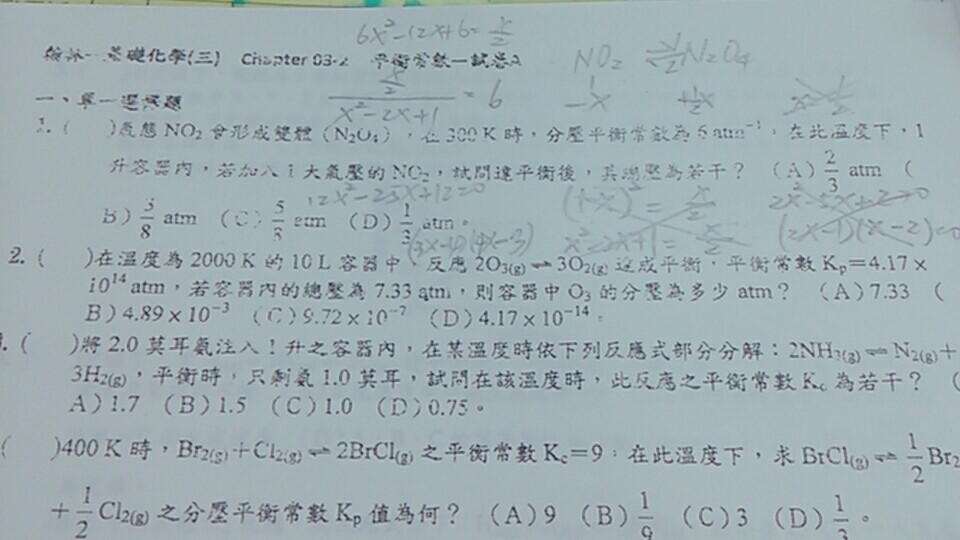 6x²-12x+6=x/2
基礎化學(三) Chapter 03-2 平衡常數—試卷A
NO₂ ⇌ 1/2 N₂O₄
(x/2)/(x²-2x+1) = 6
-x +1/2x
一、單一選擇題
1. ( )氣態 NO₂ 會形成雙體(N₂O₄),在 300 K 時,分壓平衡常數為 6 atm⁻¹,在此溫度下,1
升容器內,若加入 1 大氣壓的 NO₂,試問達平衡後,其總壓為若干? (A) 2/3 atm (
12x²-25x+12=0
(1-x)² = x/2
2x²-5x+2=0
B) 3/8 atm (C) 5/8 atm (D) 1/3 atm。
(3x-4)(4x-3)
x²-2x+1=x/2
(2x-1)(x-2)=0
2. ( )在溫度為 2000 K 的 10 L 容器中,反應 2O₃(g) ⇌ 3O₂(g) 達成平衡,平衡常數 Kp=4.17 ×
10¹⁴ atm,若容器內的總壓為 7.33 atm,則容器中 O₃ 的分壓為多少 atm? (A) 7.33 (
B) 4.89 × 10⁻³ (C) 9.72 × 10⁻⁷ (D) 4.17 × 10⁻¹⁴。
( )將 2.0 莫耳氨注入 1 升之容器內,在某溫度時依下列反應式部分分解:2NH₃(g) ⇌ N₂(g)+
3H₂(g),平衡時,只剩氨 1.0 莫耳,試問在該溫度時,此反應之平衡常數 Kc 為若干? (
A) 1.7 (B) 1.5 (C) 1.0 (D) 0.75。
( )400 K 時,Br₂(g)+Cl₂(g) ⇌ 2BrCl(g) 之平衡常數 Kc=9,在此溫度下,求 BrCl(g) ⇌ 1/2 Br₂
+ 1/2 Cl₂(g) 之分壓平衡常數 Kp 值為何? (A) 9 (B) 1/9 (C) 3 (D) 1/3。